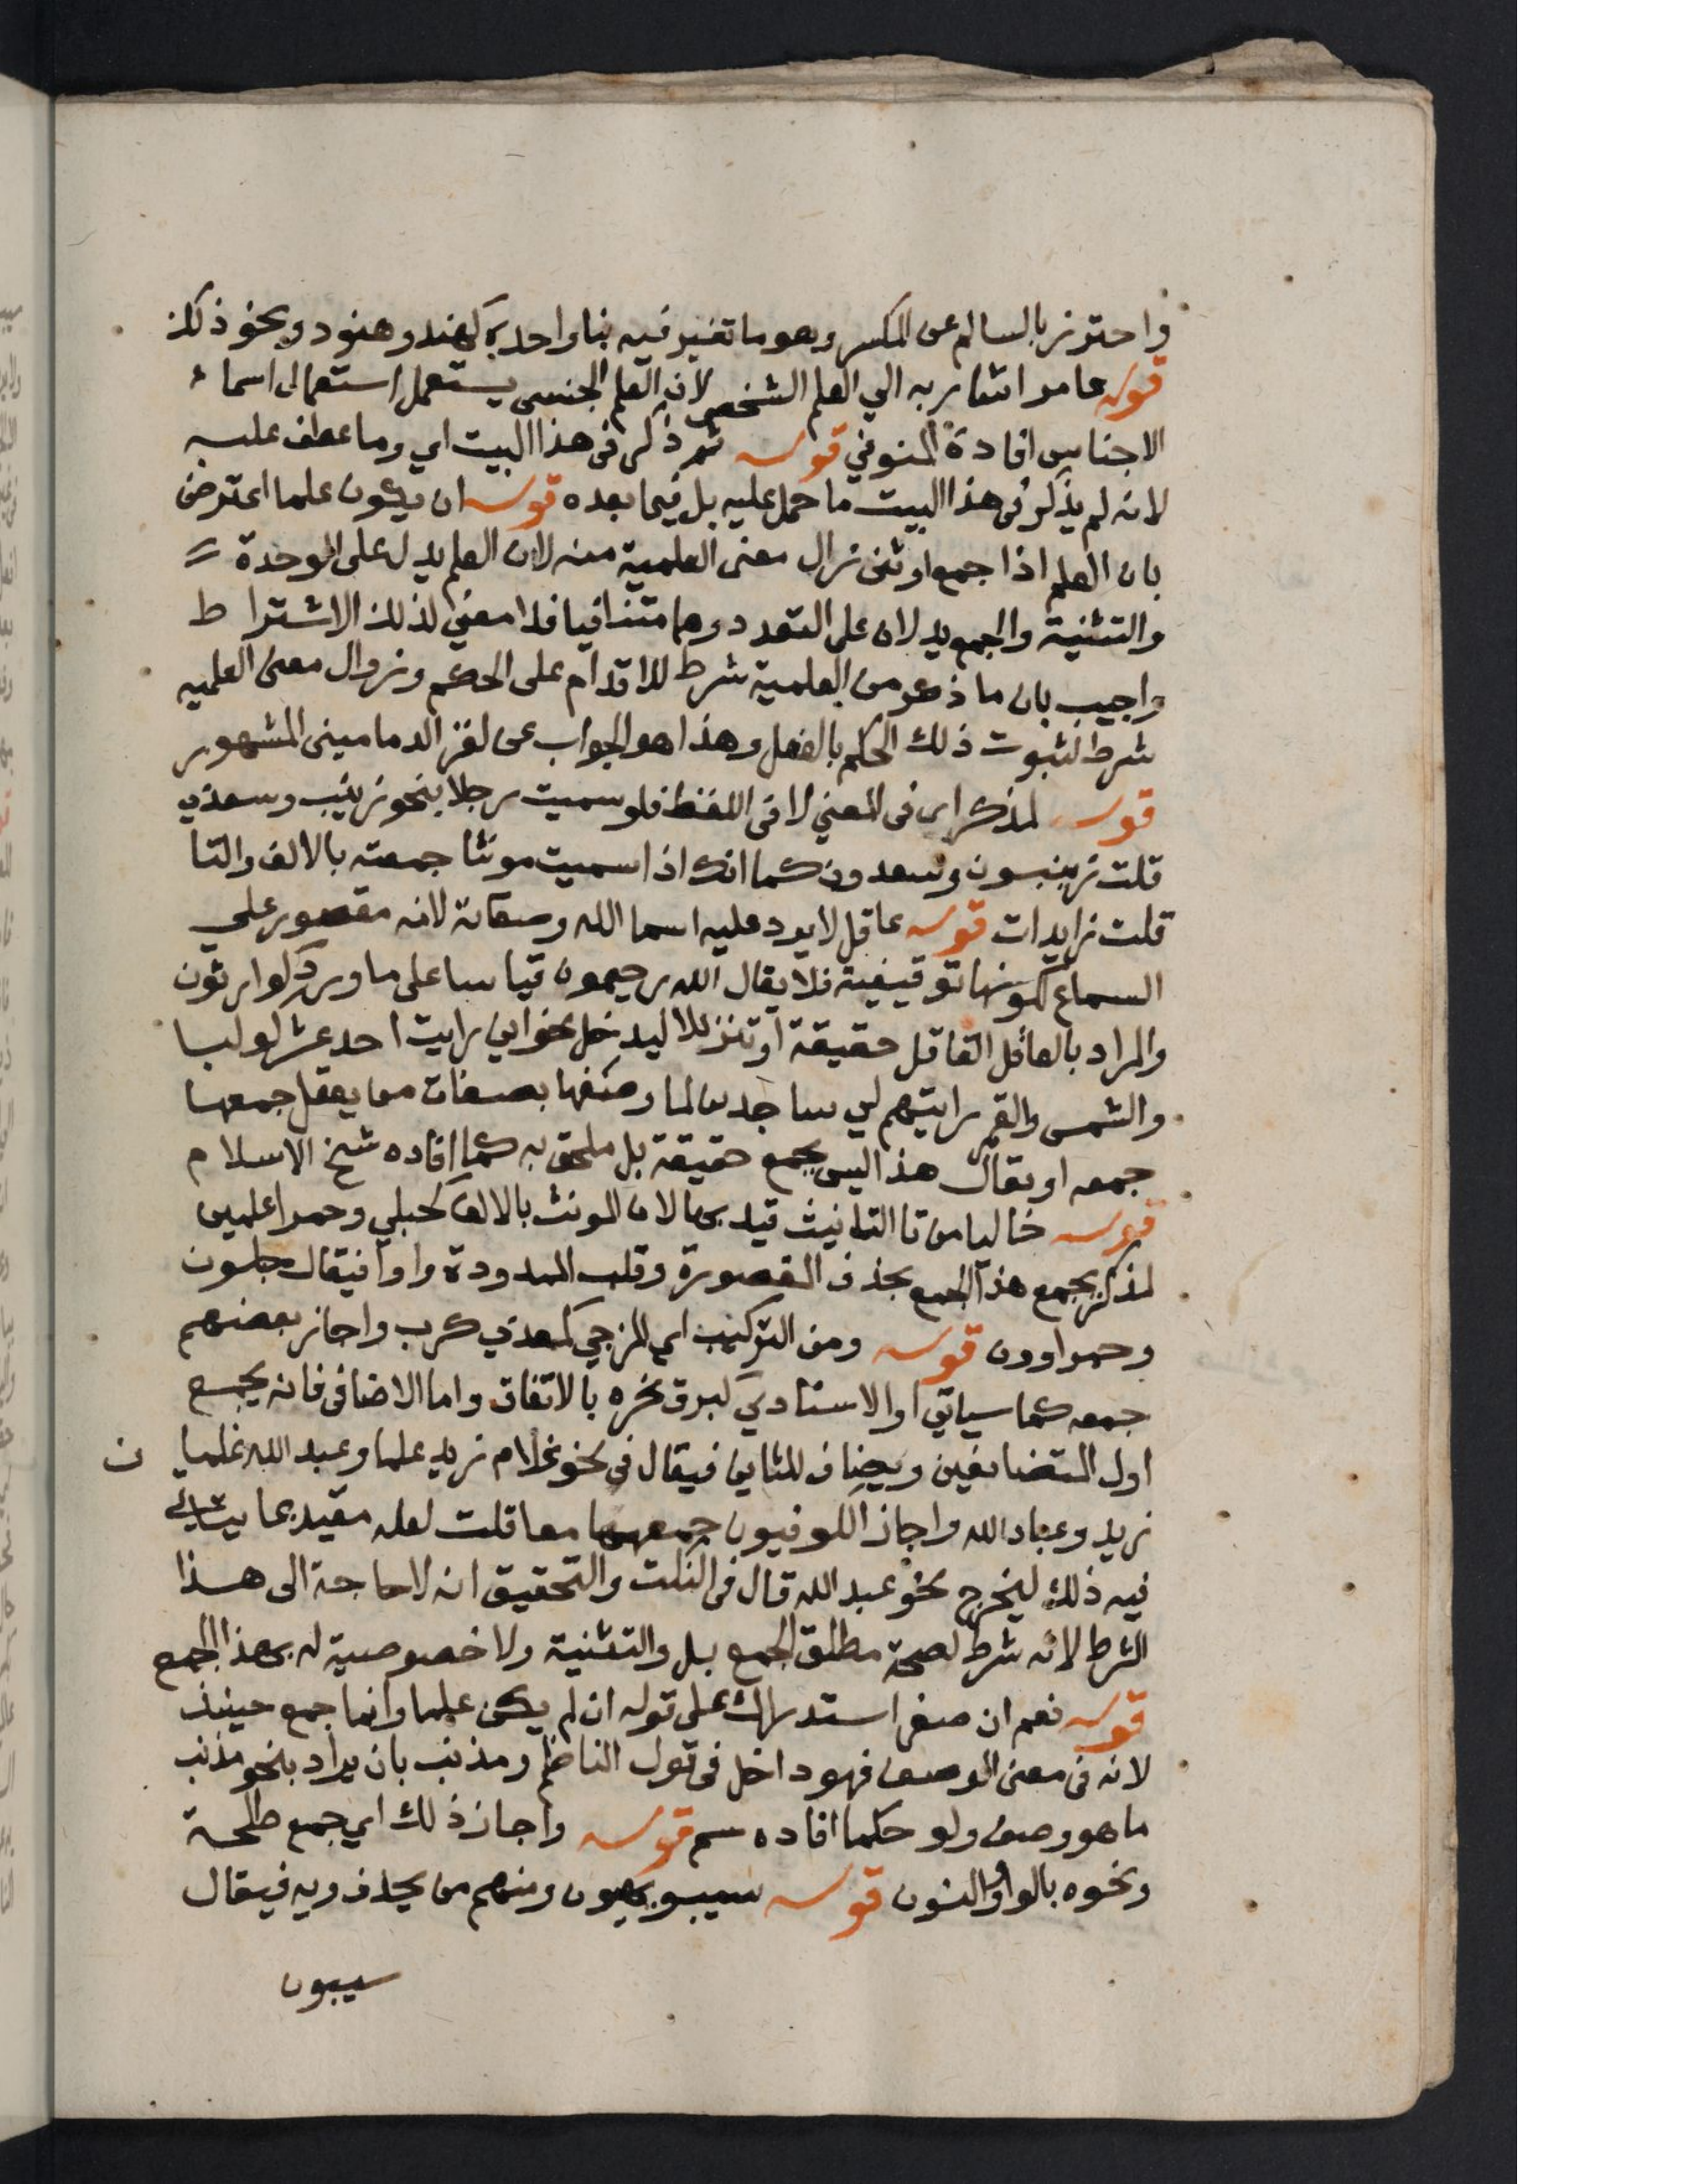 واحترز بالسالم عن المكسر وهو ما تغير فيه بناواحده كهند وهنود ونحو ذلك
قوله عامر اشار به الي العلم الشخصي لان العلم الجنسي يستعمل استعمال اسما
الاجناس افادة المنوفي قوله ثم ذكر في هذا البيت اي وما عطف عليه
لانه لم يذكر في هذا البيت ما حمل عليه بل فيما بعده قوله ان يكون علما اعترض
بان العلم اذا جمع او ثنى زال معنى العلمية منه لان العلم يدل على الوحدة
والتثنية والجمع يدلان على التعدد وهما متنافيا فلا معنى لذلك الاشتراط
واجيب بان ما ذكر من العلمية شرط للاقدام على الحكم وزوال معنى العلميه
شرط لثبوت ذلك الحكم بالفعل وهذا هو الجواب عن لغز الدماميني المشهور
قوله لمذكر اى في المعني لا في اللفظ فلو سميت رجلا بنحو زينب وسعدي
قلت زينبون وسعدون كما انك اذا سميت مونثا جمعته بالالف والتا
قلت زايدات قوله عاقل لا يرد عليه اسما الله وصفاته لانه مقصور علي
السماع لكونها توقيفية فلا يقال الله رحيمون قياسا على ما ورد كوارثون
والمراد بالعاقل العاقل حقيقة او تنزيلا ليدخل نحو اني رايت احد عشر كوكبا
والشمس والقمر رايتهم لي ساجدين لما وصفها بصفات من يعقل جمعها
جمعه او يقال هذا ليس بجمع حقيقة بل ملحق به كما افاده شيخ الاسلام
قوله خاليا من تا التانيث قيد بها لان المونث بالالف كحبلي وحمرا علمين
لمذكر يجمع هذا الجمع بحذف المقصورة وقلب الممدودة واوا فيقال حبلون
وحمراوون قوله ومن التركيب اى المزجي كمعدي كرب واجاز بعضهم
جمعه كما سياتي او الاسنادي كبرق نحره بالاتفاق واما الاضافى فانه يجمع
اول المتضايفين ويضاف للثاني فيقال في نحو غلام زيد علما وعبد الله غلمان
زيد وعباد الله واجاز الكوفيون جمعهما معا قلت لعله مقيد بما يتاتى
فيه ذلك ليخرج نحو عبد الله قال في النكت والتحقيق انه لا حاجة الى هذا
الشرط لانه شرط لصحة مطلق الجمع بل والتثنية ولا خصوصية له بهذا الجمع
قوله نعم ان صغر استدراك على قوله ان لم يكن علما وانما جمع حينئذ
لانه في معنى الوصف فهو داخل في قول الناظم ومذنب بان يراد بنحو مذنب
ما هو وصف ولو حكما افاده سم قوله واجاز ذلك اي جمع طلحة
ونحوه بالواو والنون قوله سيبويهون ومنهم من يحذف ويه فيقال
سيبون